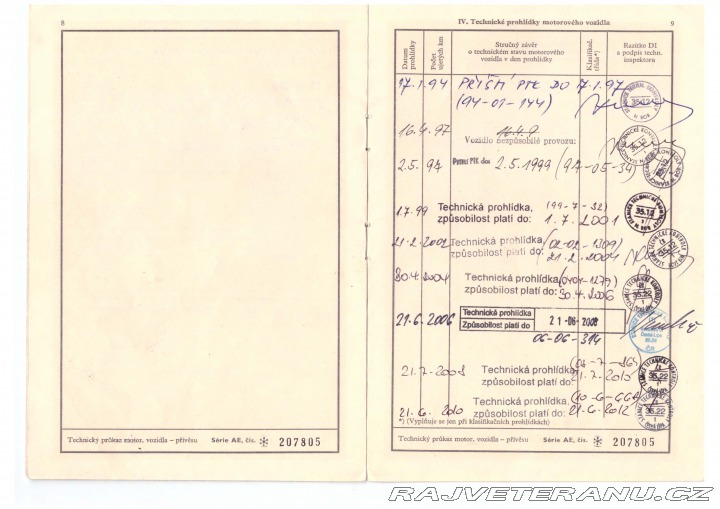 8
Technický průkaz motor. vozidla – přívěsu Série AE, čís. ✻ 207805
IV. Technické prohlídky motorového vozidla 9
Datum prohlídky
Počet ujetých km
Stručný závěr
o technickém stavu motorového
vozidla v den prohlídky
Klasifikač. třída*)
Razítko DI
a podpis techn.
inspektora
17.1.94 PŘÍŠTÍ PTK DO 17.1.97
(94-01-144)
16.4.97
Vozidlo nezpůsobilé provozu:
2.5.97 2.5.1999 (97-05-34)
(99-7-32)
1.7.99 Technická prohlídka,
způsobilost platí do: 1.7.2001
21.2.2002 Technická prohlídka, (02-02-1309)
způsobilost platí do: 21.2.2004
30.4.2004 Technická prohlídka, (0404-1279)
způsobilost platí do: 30.4.2006
21.6.2006 Technická prohlídka
Způsobilost platí do 21-06-2008
06-06-314
21.7.2008 Technická prohlídka,
způsobilost platí do: 21.7.2010
Technická prohlídka,
21.6.2010 způsobilost platí do: 21.6.2012
*) (Vyplňuje se jen při klasifikačních prohlídkách)
Technický průkaz motor. vozidla – přívěsu Série AE, čís. ✻ 207805
RAJVETERANU.CZ